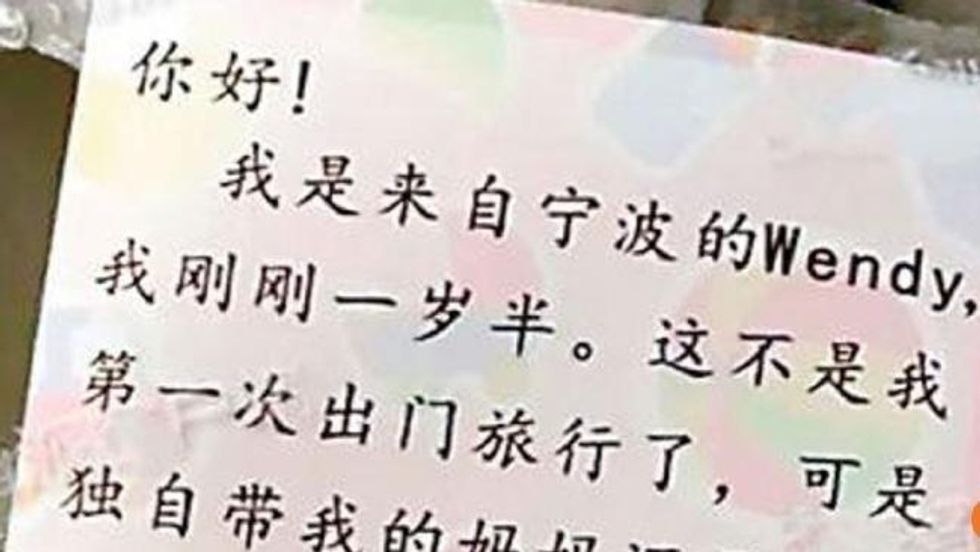 你好!
我是来自宁波的Wendy,
我刚刚一岁半。这不是我
第一次出门旅行了，可是
独自带我的妈妈